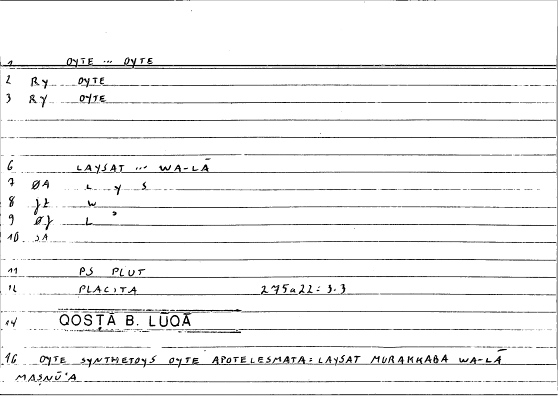 1 OYTE ... OYTE
2 Ry OYTE
3 Ry OYTE
6 LAYSAT ... WA-LĀ
7 ØA L y S
8 jt W
9 Øj L ʾ
10 JA
11 PS PLUT
12 PLACITA 275a22: 3.3
14 QOSṬĀ B. LŪQĀ
16 OYTE SYNTHETOYS OYTE APOTELESMATA: LAYSAT MURAKKABA WA-LĀ
MAṢNŪʿA